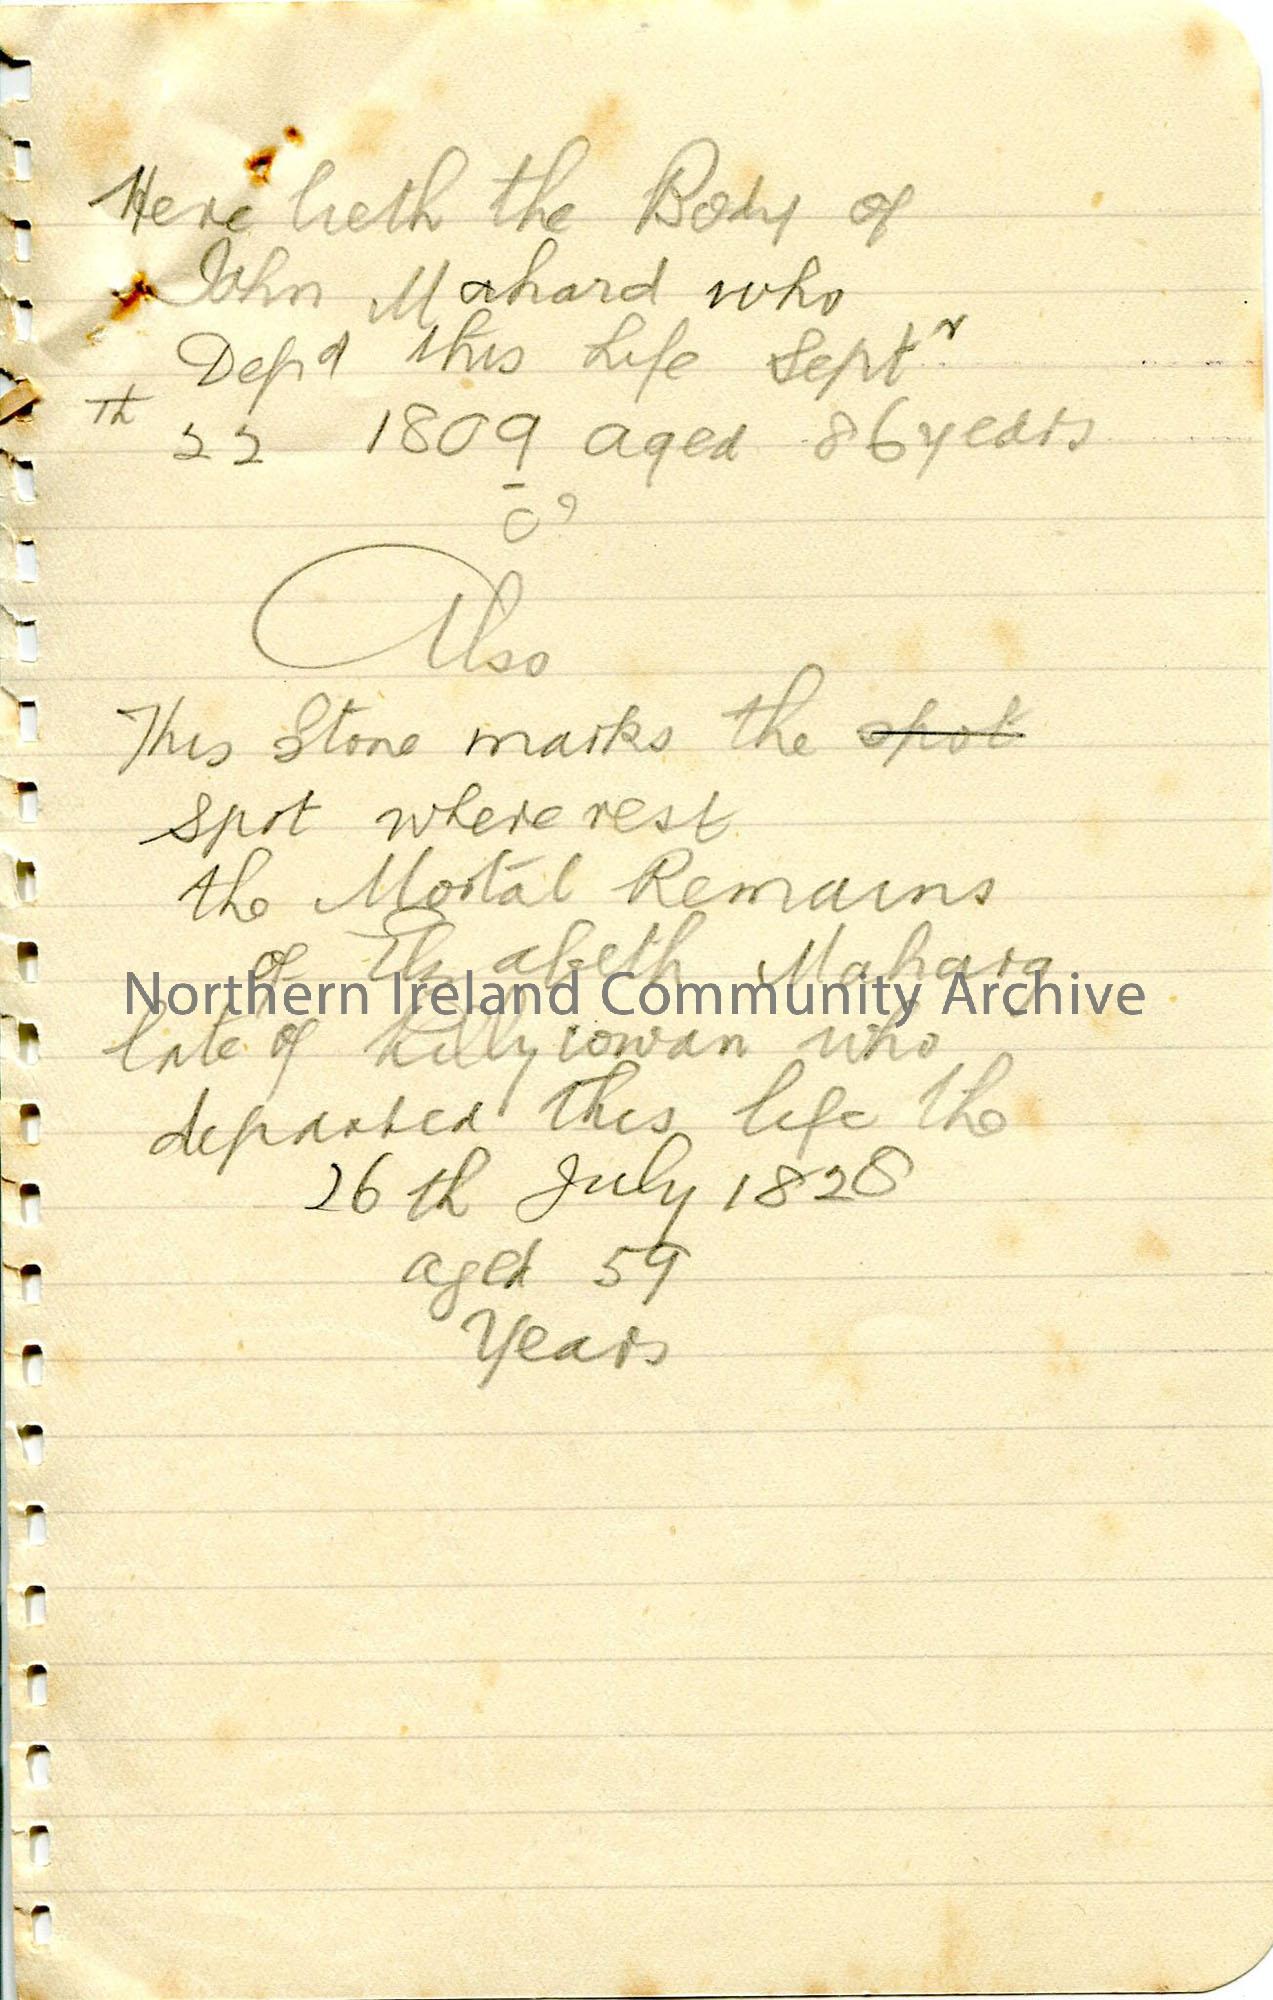 Here lieth the Body of
John Mahard who
Dep'd this Life Sept r
Th
22 1809 aged 86 years
0?
Also
This Stone marks the spot
spot where rest
the Mortal Remains
of Elizabeth Maharg
Northern Ireland Community Archive
late of Killyrowan who
departed this life the
26th July 1828
aged 59
Years